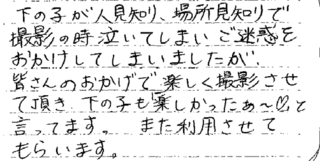 下の子が人見知り、場所見知りで
撮影の時泣いてしまいご迷惑を
おかけしてしまいましたが、
皆さんのおかげで楽しく撮影させ
て頂き 下の子も楽しかったぁ〜♡と
言ってます。 また利用させて
もらいます。